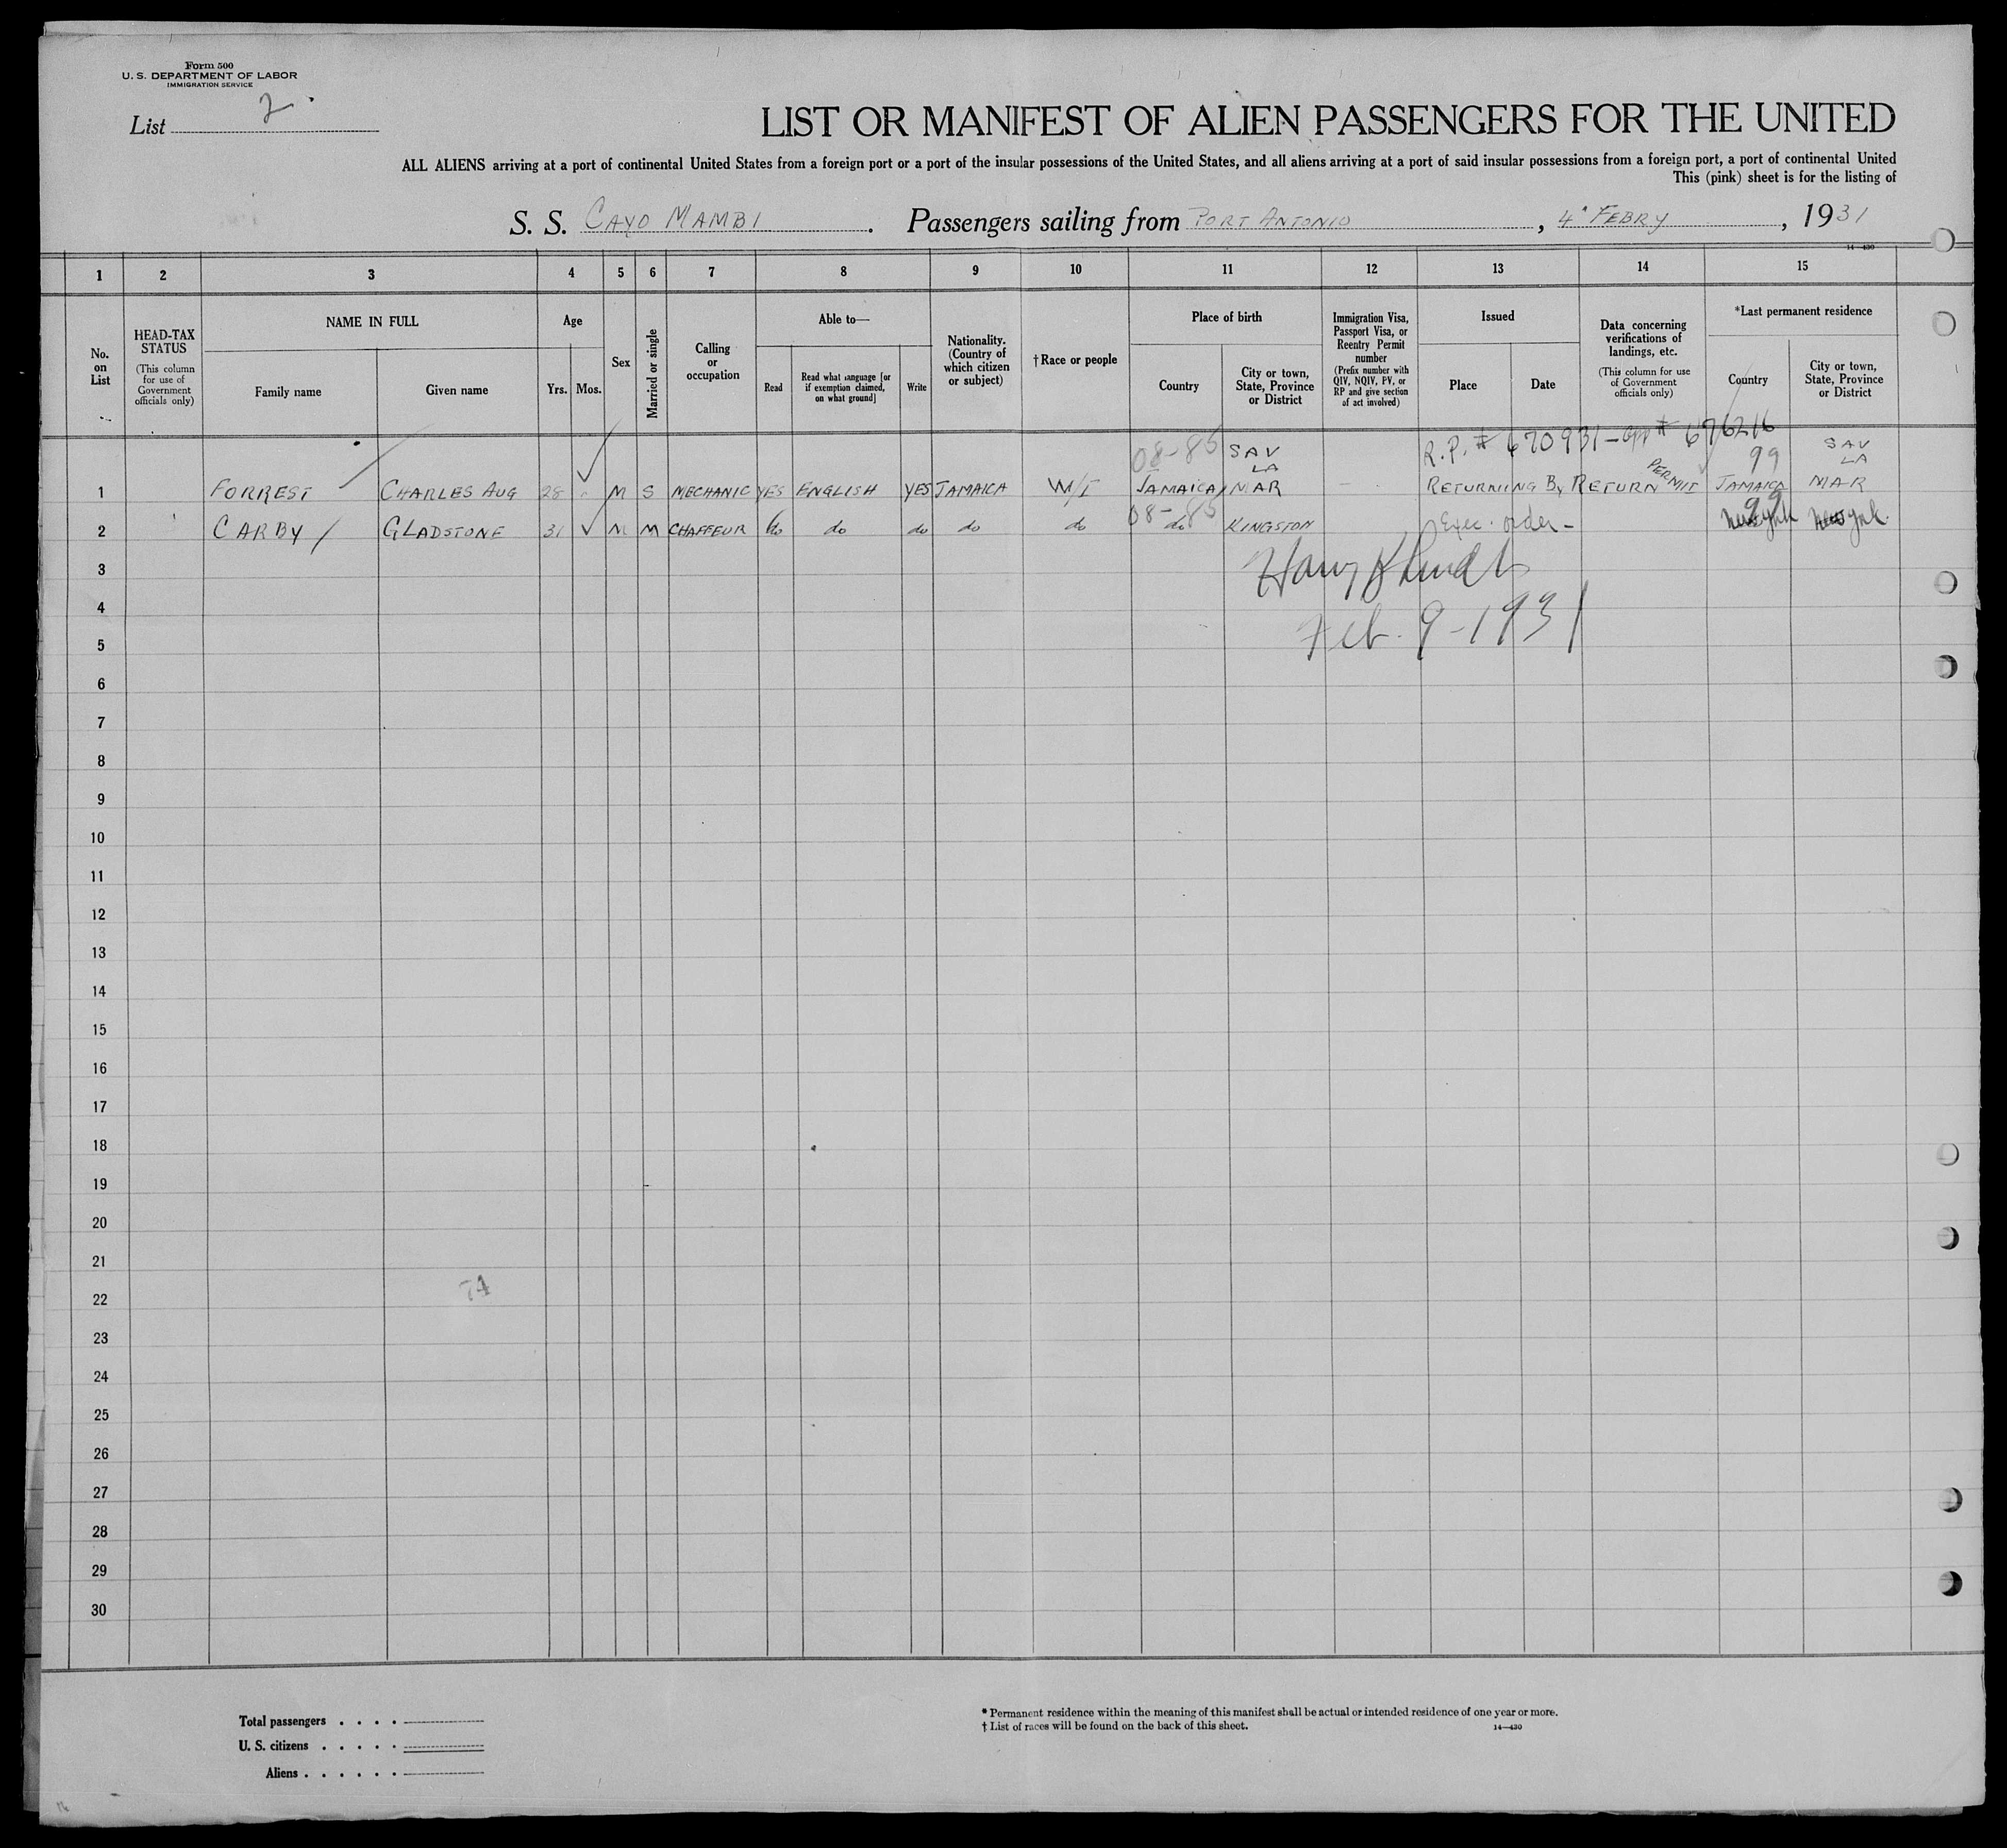 Form 500
U. S. DEPARTMENT OF LABOR
IMMIGRATION SERVICE
List 2
LIST OR MANIFEST OF ALIEN PASSENGERS FOR THE UNITED
ALL ALIENS arriving at a port of continental United States from a foreign port or a port of the insular possessions of the United States, and all aliens arriving at a port of said insular possessions from a foreign port, a port of continental United
This (pink) sheet is for the listing of
S. S. CAYO MAMBI. Passengers sailing from PORT ANTONIO, 4" FEBRY, 1931
14—430
1 2 3 4 5 6 7 8 9 10 11 12 13 14 15
No. on List
HEAD-TAX STATUS
(This column for use of Government officials only)
NAME IN FULL
Family name
Given name
Age
Yrs.
Mos.
Sex
Married or single
Calling or occupation
Able to—
Read
Read what language [or if exemption claimed, on what ground]
Write
Nationality. (Country of which citizen or subject)
†Race or people
Place of birth
Country
City or town, State, Province or District
Immigration Visa, Passport Visa, or Reentry Permit number
(Prefix number with QIV, NQIV, PV, or RP and give section of act involved)
Issued
Place
Date
Data concerning verifications of landings, etc.
(This column for use of Government officials only)
*Last permanent residence
Country
City or town, State, Province or District
08-85 R.P. # 670931 - app # 676216 99
1 FORREST CHARLES AUG 28 M S MECHANIC YES ENGLISH YES JAMAICA W/I JAMAICA SAV LA MAR — RETURNING BY RETURN PERMIT JAMAICA SAV LA MAR
08-85 99
2 CARBY / GLADSTONE 31 M M CHAFFEUR do do do do do do KINGSTON Exec. order - New York New York
3
Feb. 9-1931
4
5
6
7
8
9
10
11
12
13
14
15
16
17
18
19
20
21
74
22
23
24
25
26
27
28
29
30
Total passengers . . . .
U. S. citizens . . . . .
Aliens . . . . . .
* Permanent residence within the meaning of this manifest shall be actual or intended residence of one year or more.
† List of races will be found on the back of this sheet.
14—430